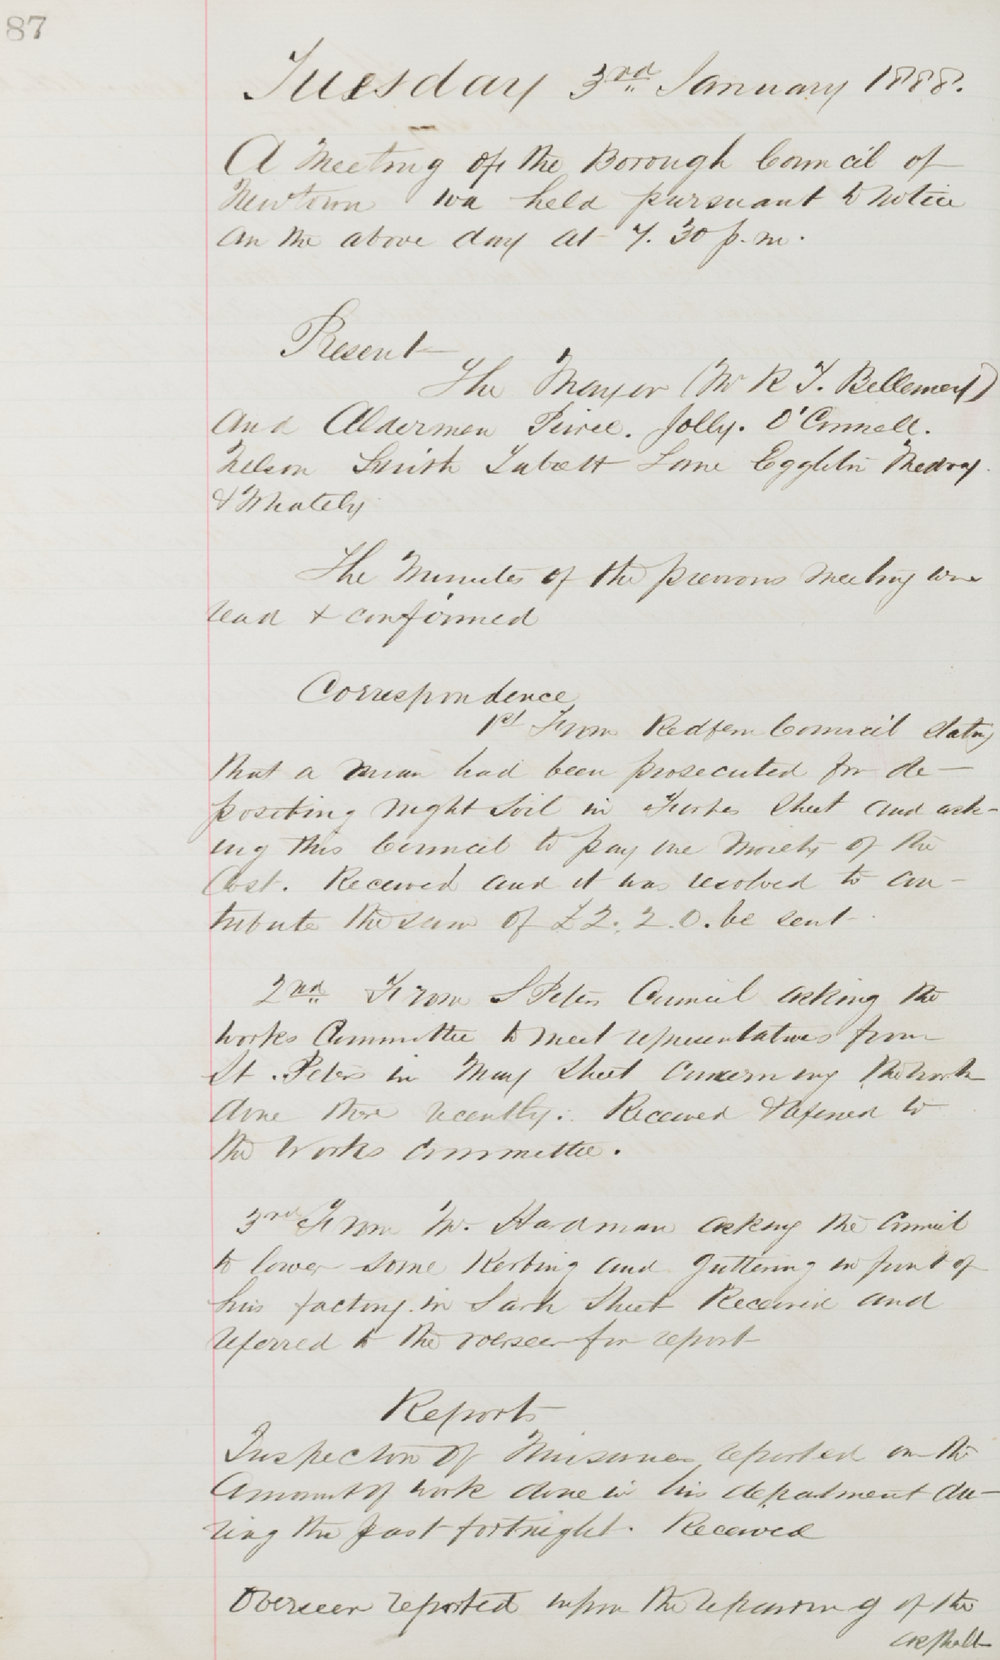 87
Tuesday 3rd January 1888.
A Meeting of the Borough Council of
Newtown was held pursuant to notice
on the above day at 7.30 p.m.
Present
The Mayor (Mr R T. Bellemey)
and Aldermen Peirce. Jolly. O'Connell.
Nelson Smith Lane Eggleton
& Whately
The Minutes of the previous meeting were
read & confirmed
Correspondence
1st From Redfern Council stating
that a man had been prosecuted for de-
positing night soil in Forbes Street and ask-
ing this Council to pay one moiety of the
Cost. Received and it was resolved to con-
tribute the sum of £2.2.0. be sent
2nd From St Peters Council asking the
Works Committee to meet representatives from
St. Peters in May Street concerning the work
done there recently. Received & referred to
the Works Committee.
3rd From Mr. Hardman asking the Council
to lower some Kerbing and Guttering in front of
his factory in Sarah Street Received and
referred to the overseer for report
Reports
Inspector of Nuisances reported on the
Amount of work done in his department du-
ring the past fortnight. Received
Overseer reported upon the repairing of the
asphalt